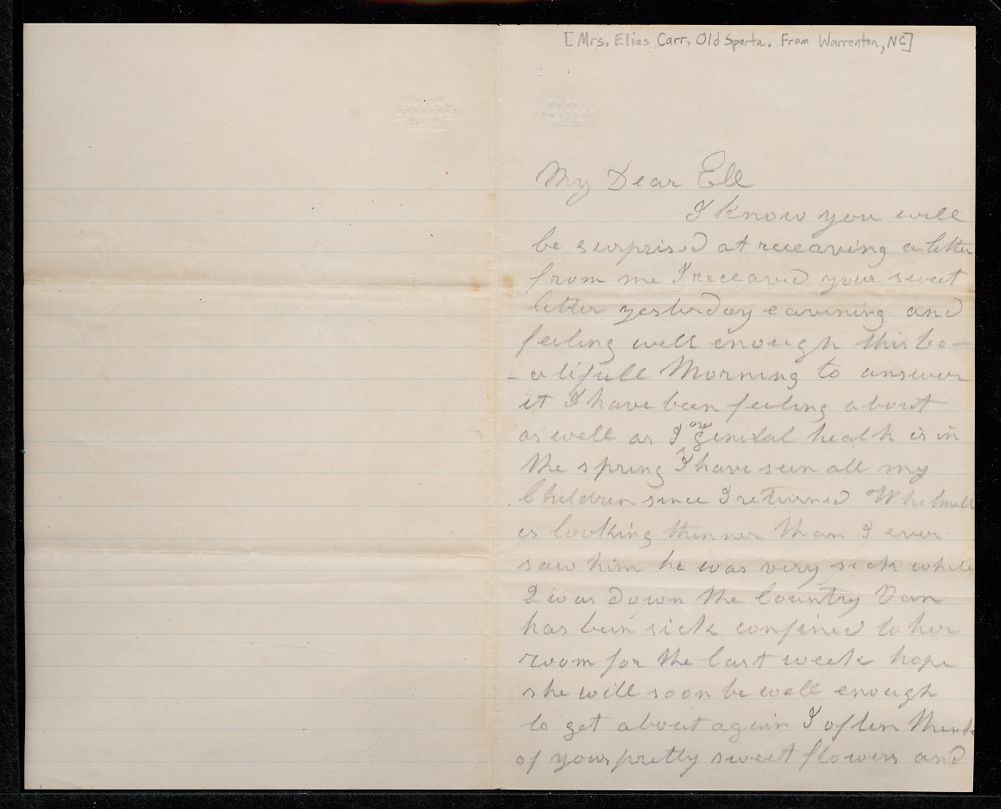 [Mrs. Elias Carr, Old Sparta. From Warrenton, NC]
My Dear Ell
I know you will
be surprised at receaving a letter
from me I receaved your sweet
letter yesterday eavining and
feeling well enough this be-
-a tifull Morning to answer
it I have been feeling about
as well as I genixal health is in
the spring I have seen all my
Children since I returned
is looking thinner than I ever
saw him he was very sick while
I was down the Country Van
has been sick confined to her
room for the last week hope
she will soon be well enough
to get about again I often think
of your pretty sweet flowers and